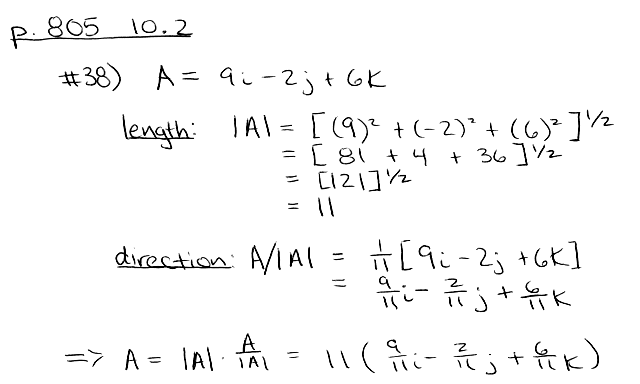 p. 805 10.2
#38) A = 9i - 2j + 6k
length: |A| = [(9)² + (-2)² + (6)²]^1/2
= [81 + 4 + 36]^1/2
= [121]^1/2
= 11
direction: A/|A| = 1/11 [9i - 2j + 6k]
= 9/11 i - 2/11 j + 6/11 k
=> A = |A| · A/|A| = 11 (9/11 i - 2/11 j + 6/11 k)